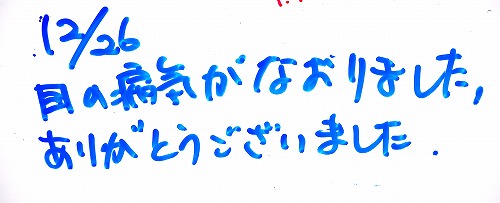 12/26
目の病気がなおりました,
ありがとうございました.